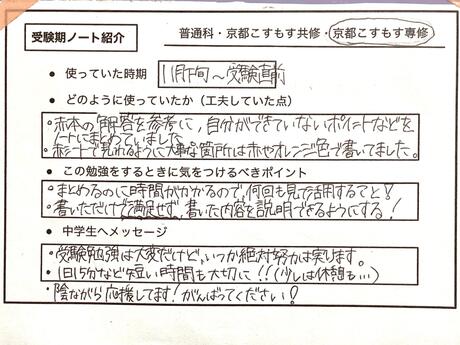 受験期ノート紹介
普通科・京都こすもす共修・京都こすもす専修
● 使っていた時期 11月下旬～受験直前
● どのように使っていたか(工夫していた点)
・赤本の解答を参考に、自分ができていないポイントなどを
ノートにまとめていました
・赤シートで見れるように大事な箇所は赤やオレンジ色で書いてました。
● この勉強をするときに気をつけるべきポイント
・まとめるのに時間がかかるので、何回も見て活用すること!
・書いただけで満足せず、書いた内容を説明できるようにする!
● 中学生へメッセージ
・受験勉強は大変だけど、いつか絶対努力は実ります。
・1日15分など短い時間も大切に!!(少しは休憩も…)
・陰ながら応援してます!がんばってください!